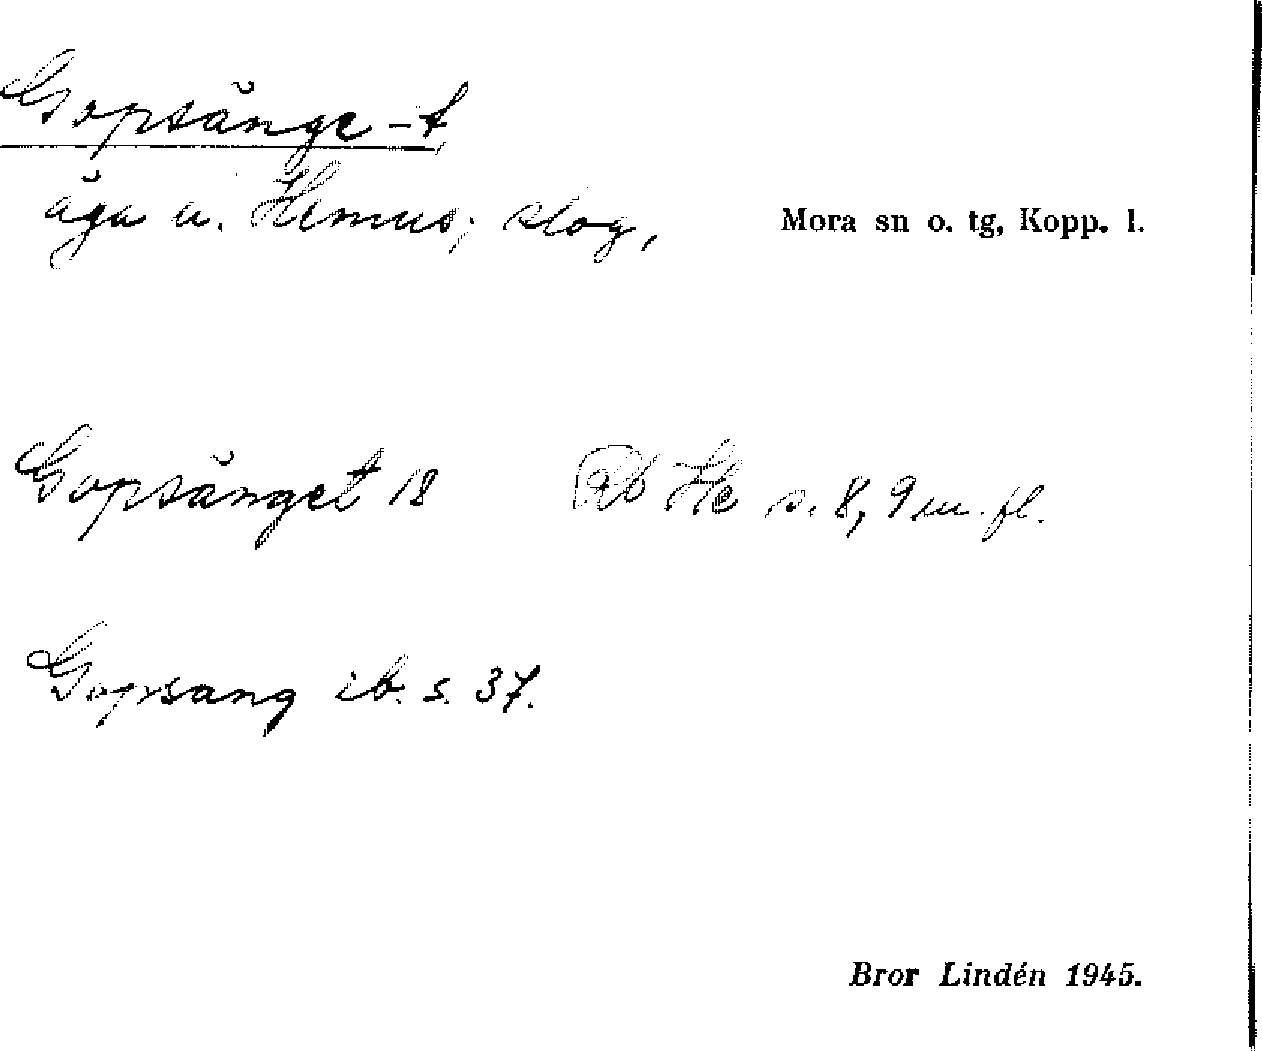 Gopsänge -t
äga u. Hemus; skog, Mora sn o. tg, Kopp. l.
Gopsänget 18 Rb He s. 8, 9 m. fl.
Gopsäng ib. s. 37.
Bror Lindén 1945.